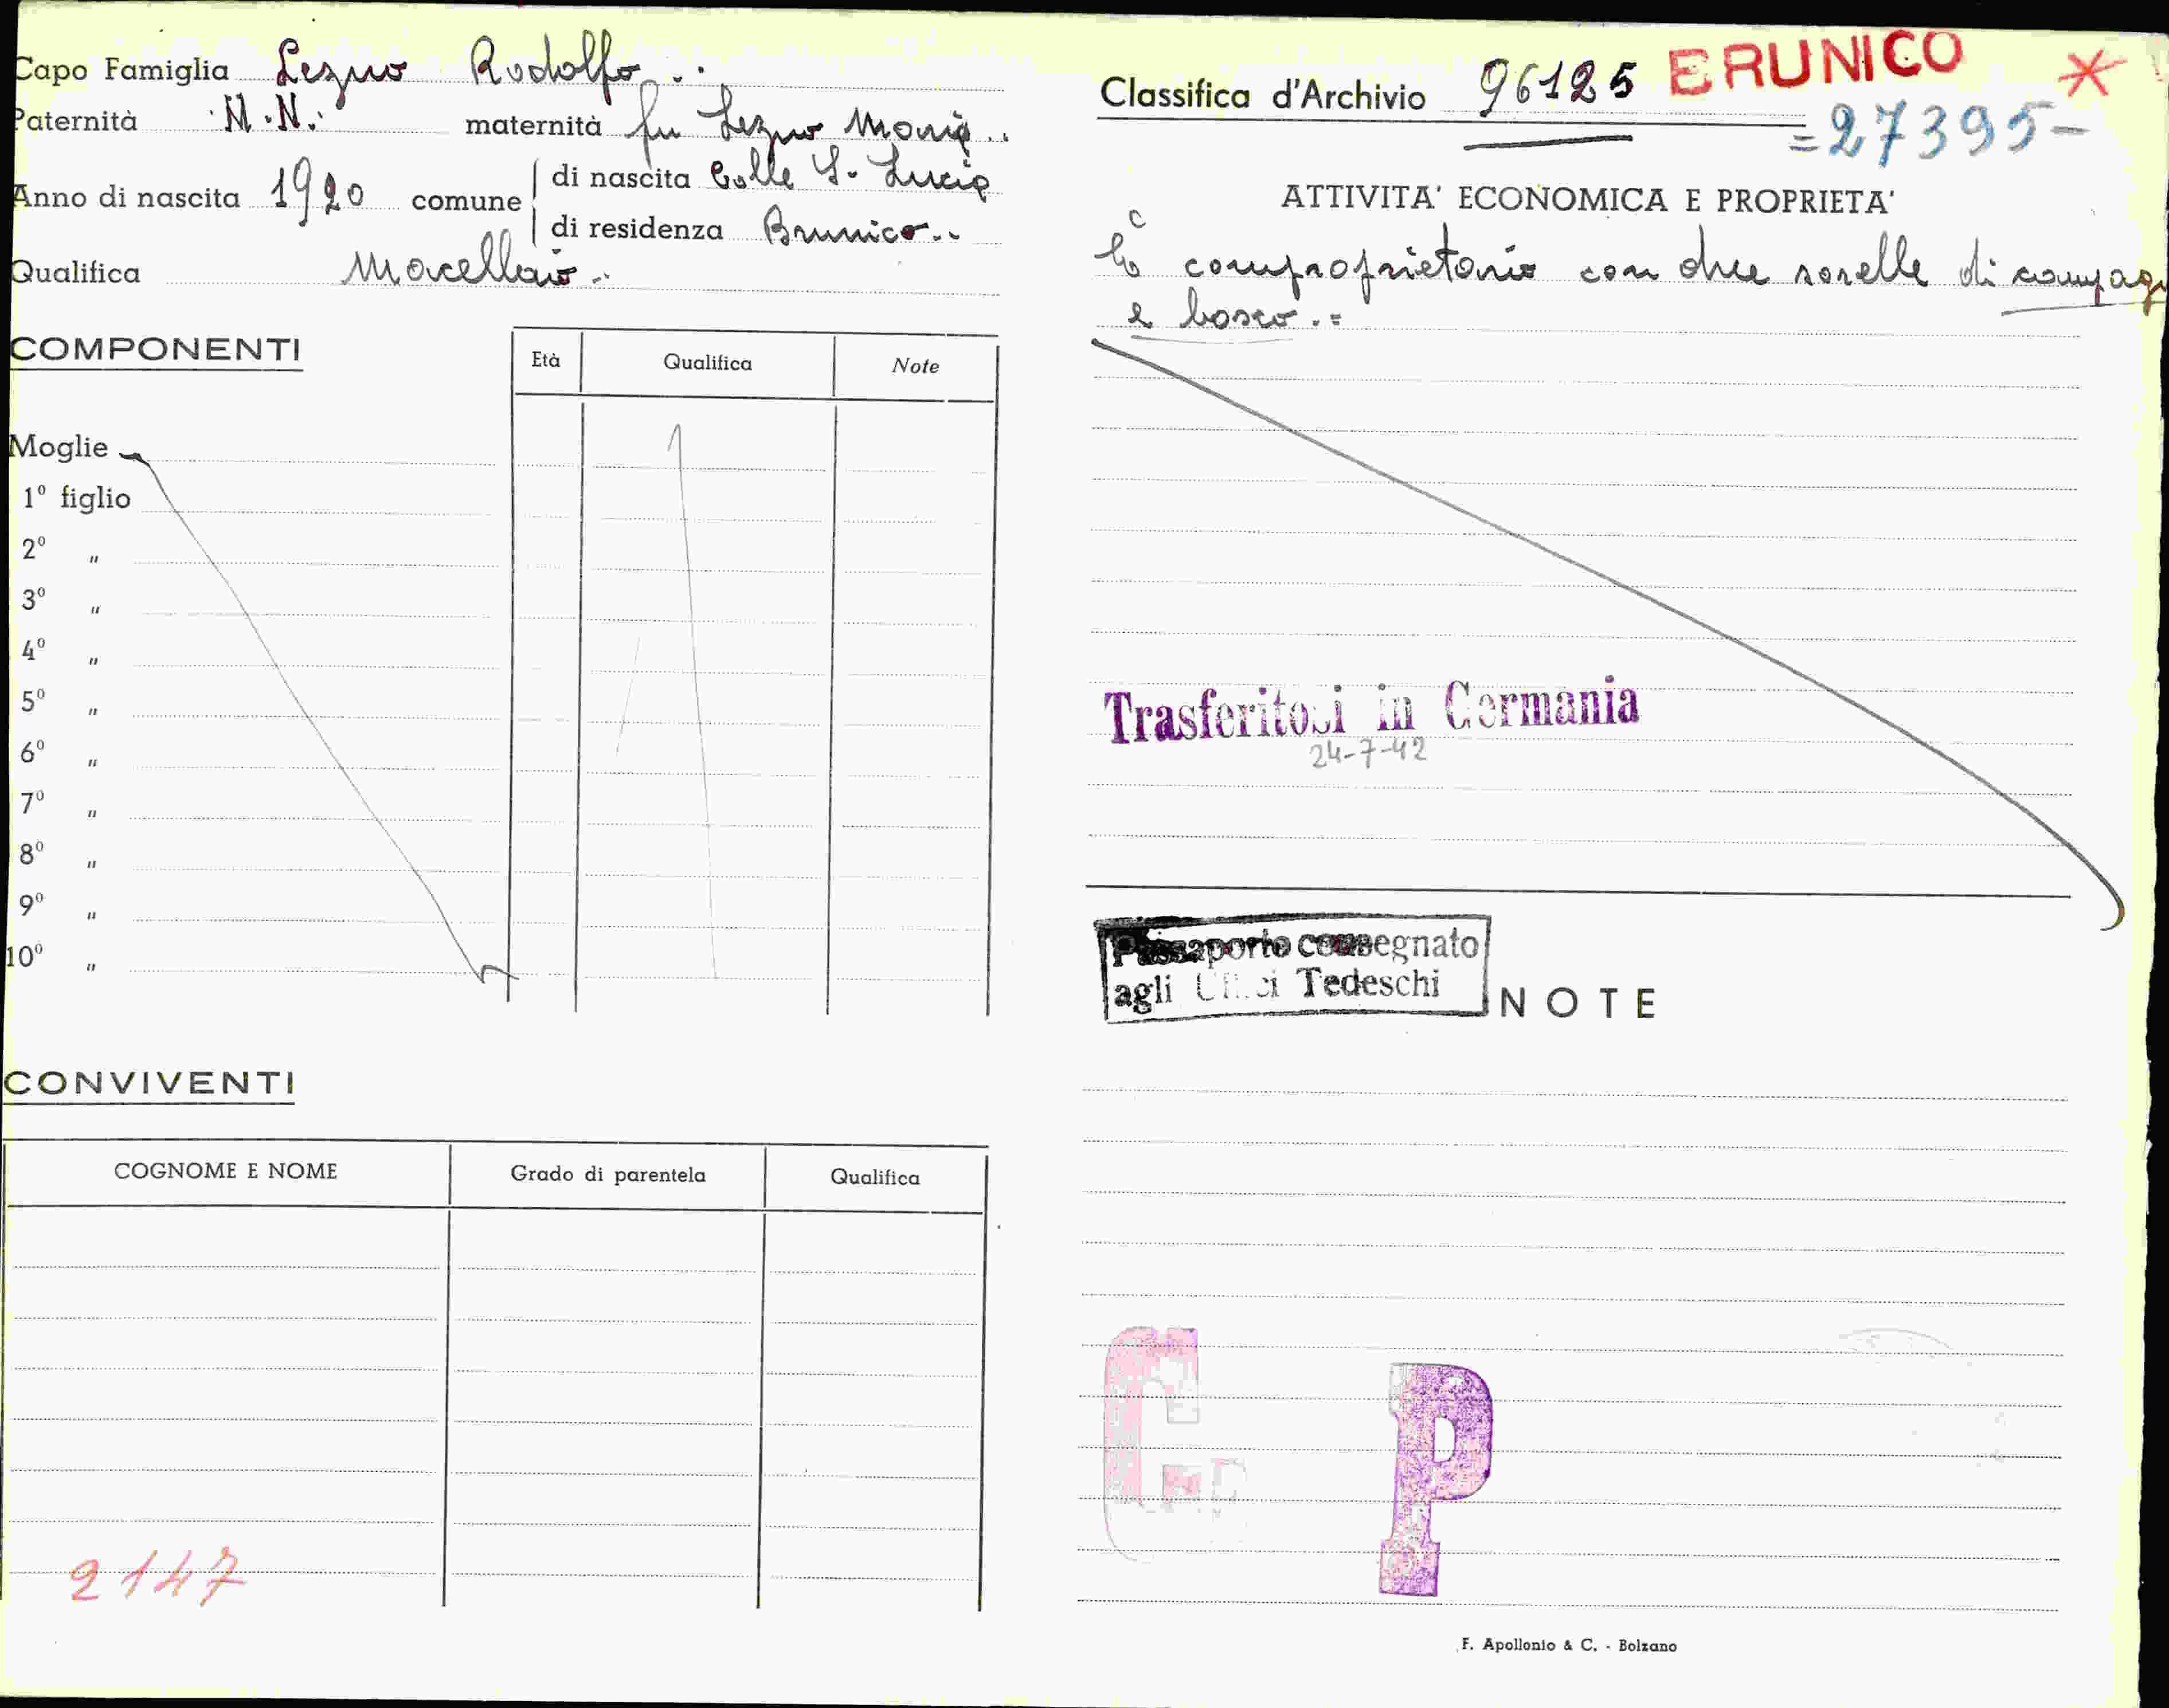 Capo Famiglia Lezuo Rodolfo..
Paternità N.N. maternità fu Lezuo Maria..
Anno di nascita 1920 comune di nascita Colle S. Lucia
di residenza Brunico..
Qualifica Macellaio..
COMPONENTI
Età Qualifica Note
Moglie
1º figlio
2º "
3º "
4º "
5º "
6º "
7º "
8º "
9º "
10º "
CONVIVENTI
COGNOME E NOME Grado di parentela Qualifica
2147
Classifica d'Archivio 96125 BRUNICO
=27395-
ATTIVITA' ECONOMICA E PROPRIETA'
comproprietario con due sorelle di campag
e bosco..=
Trasferitosi in Germania
24-7-42
Passaporto consegnato
agli Uffici Tedeschi
NOTE
C P
F. Apollonio & C. - Bolzano